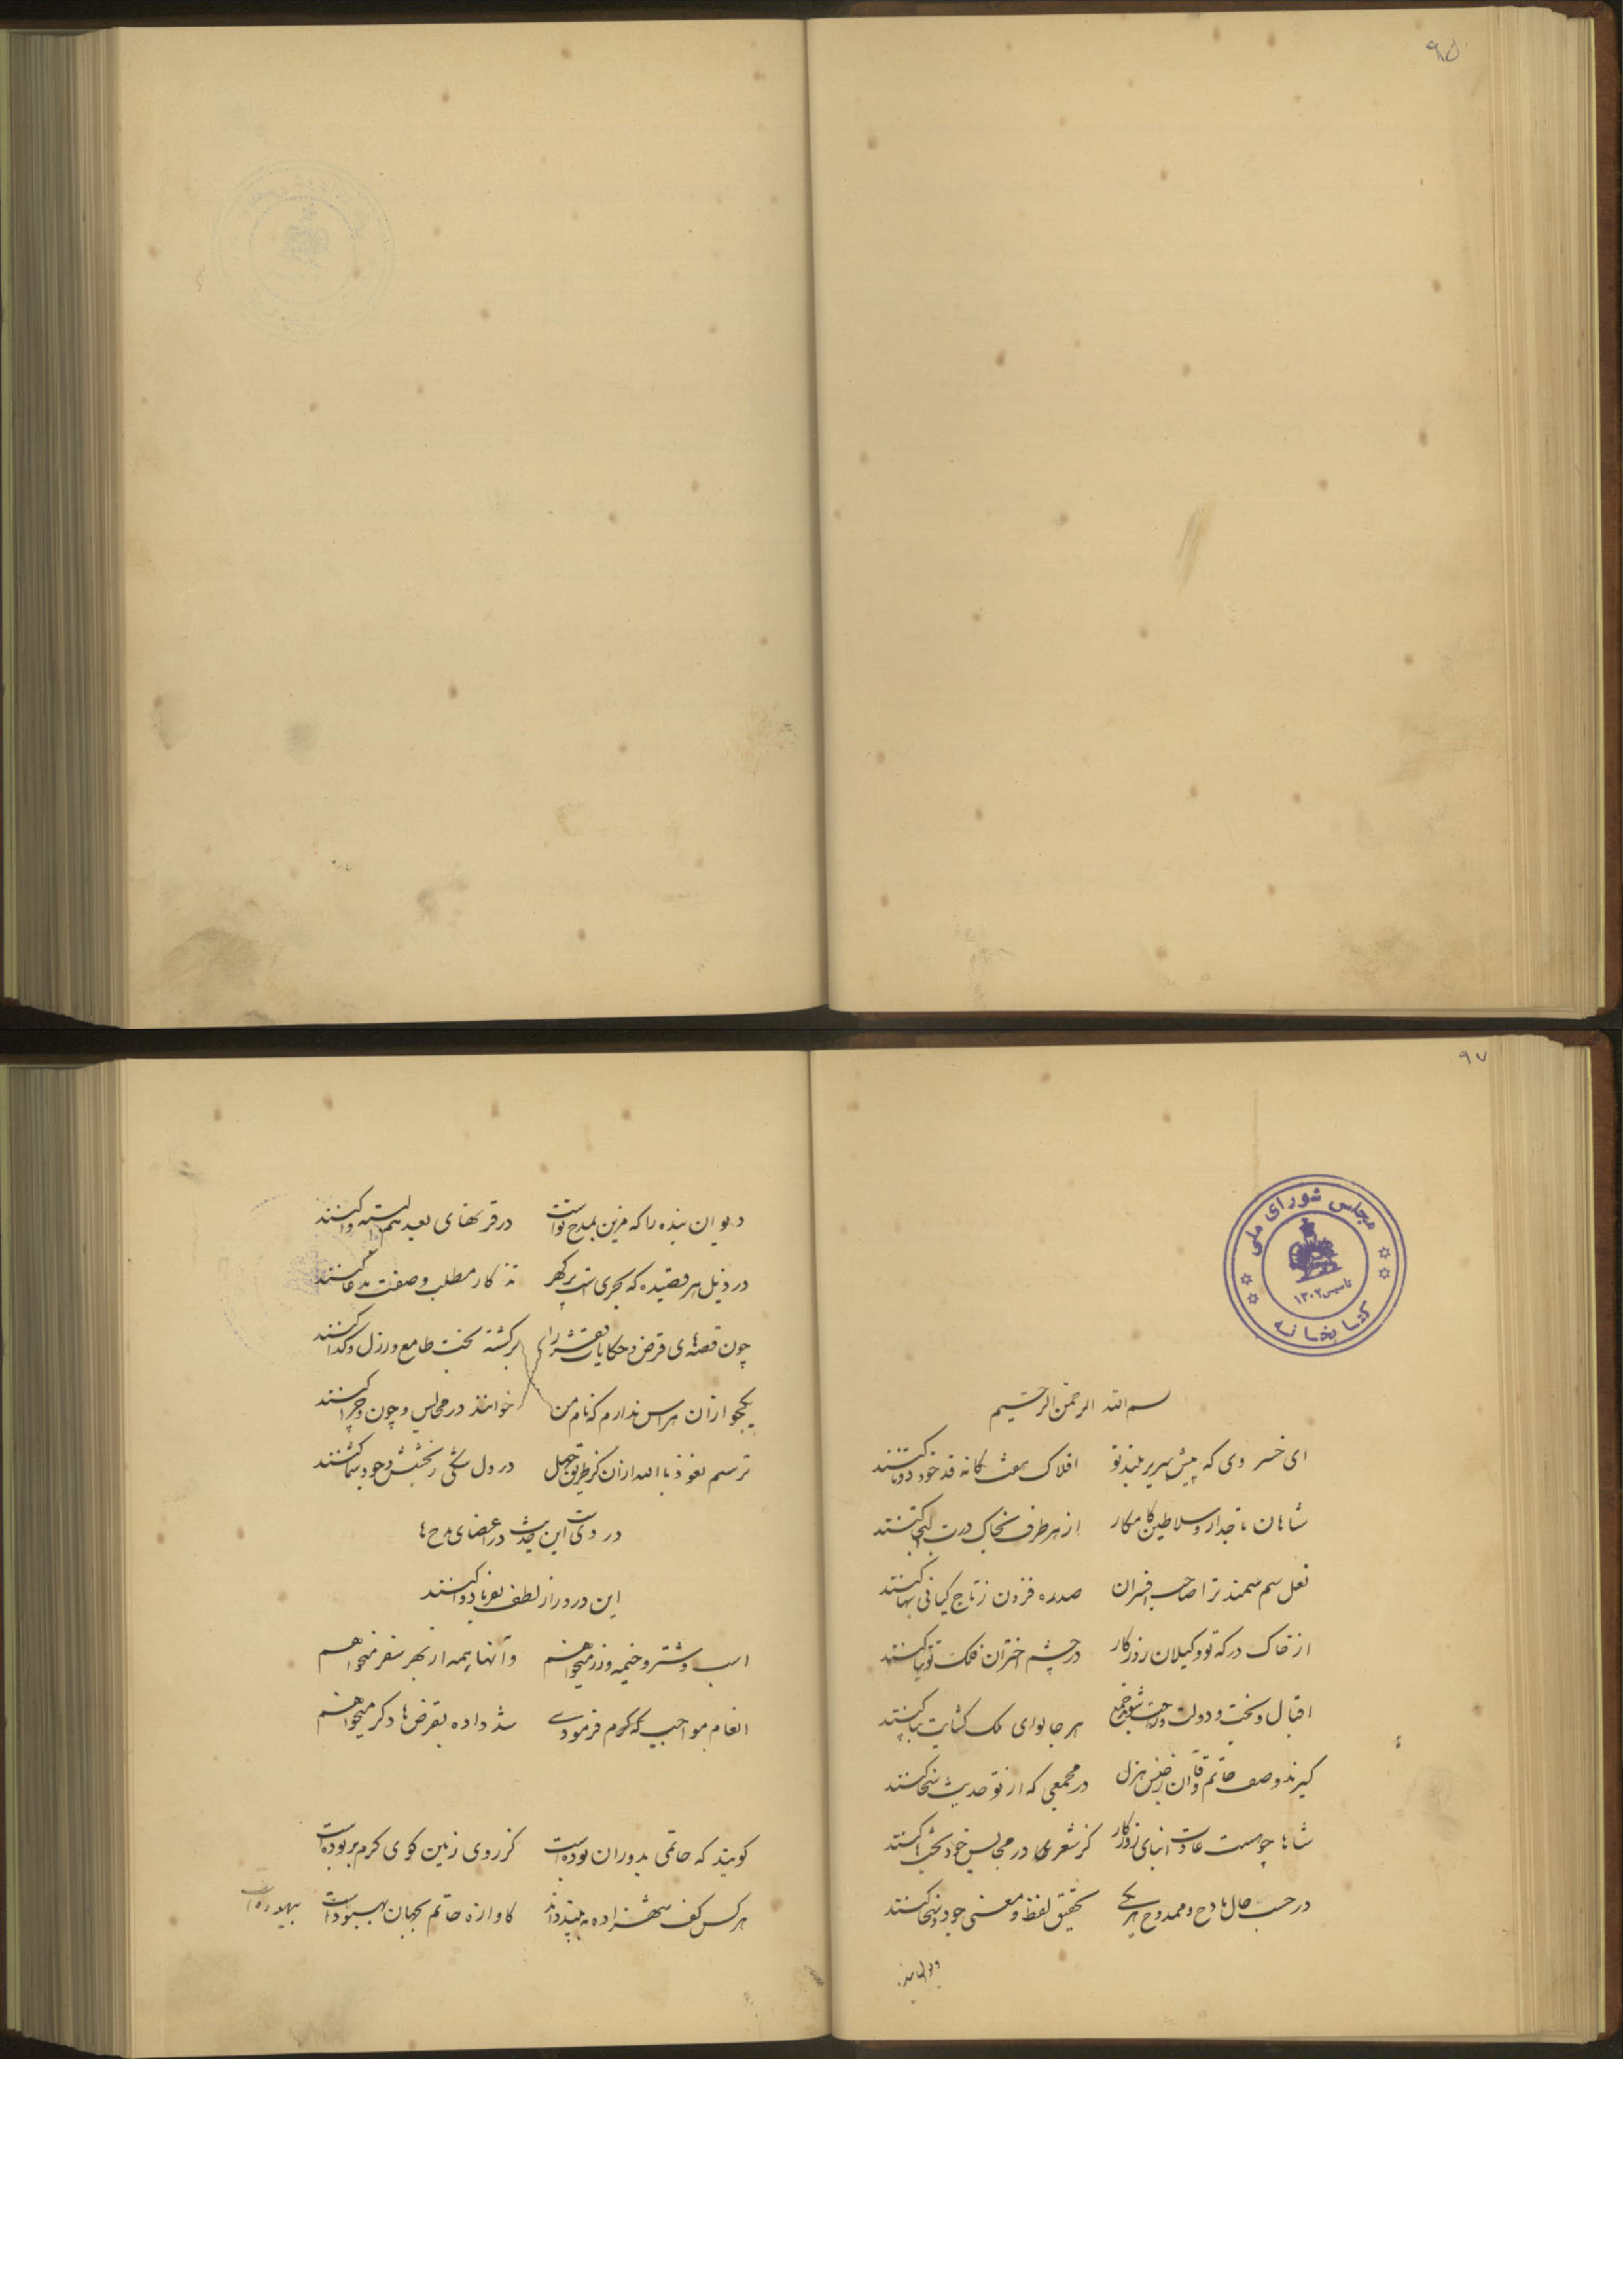 ۹۵
۹۷
مجلس شورای ملی
کتابخانه
تاسیس ۱۳۰۲
بسم الله الرحمن الرحیم
ای خسروی که پیش سریر بلند تو افلاک هفت کانه قد خود دوتا کنند
شاهان تاجدار و سلاطین کامکار از هر طرف بخاک درت التجا کنند
نعل سم سمند ترا صاحب افسران صدره فزون ز تاج کیانی بها کنند
از خاک درکه تو وکیلان روزکار در چشم اختران فلک توتیا کنند
اقبال و بخت و دولت و هر جا لوای ملک کشایت بپا کنند
کیرند وصف حاتم و قاآن ز جنس هزل در مجمعی که از تو حدیث سخا کنند
شاها چو هست عادت ابنای روزکار کز شعرها در مجالس خود بحثها کنند
در حسب حال مادح و ممدوح هر یکی تحقیق لفظ و معنی جود و سخا کنند
دیوان بنده را که مزین بمدح تو است در قرنهای بعید هم بسته وا کنند
در ذیل هر قصیده که بحری است پر کهر تذکار مطلب و صفت مدعا کنند
چون قصهای قرض و حکایات برکشته بخت طامع و رزل و کدا کنند
یکجو ازان هراس ندارم که نام من خوانند در مجالس و چون و چرا کنند
ترسم نعوذ باالله ازان کز طریق جهل در دل شکی ز بخشش وجود شما کنند
در دیست این حدیث در اعضای مدح ها
این درد را ز لطف بفرما دوا کنند
اسب و شتر و خیمه و زر میخواهم و آنها همه از بهر سفر میخواهم
انعام مواجبی که کرم فرمودی شد داده بقرض ها دکر میخواهم
کویند که حاتمی بدوران بوده است کز روی زمین کوی کرم بربوده است
هر کس کف شهزاده به بیند داند کاوازه حاتم بجهان بیهوده است
بیهوده است